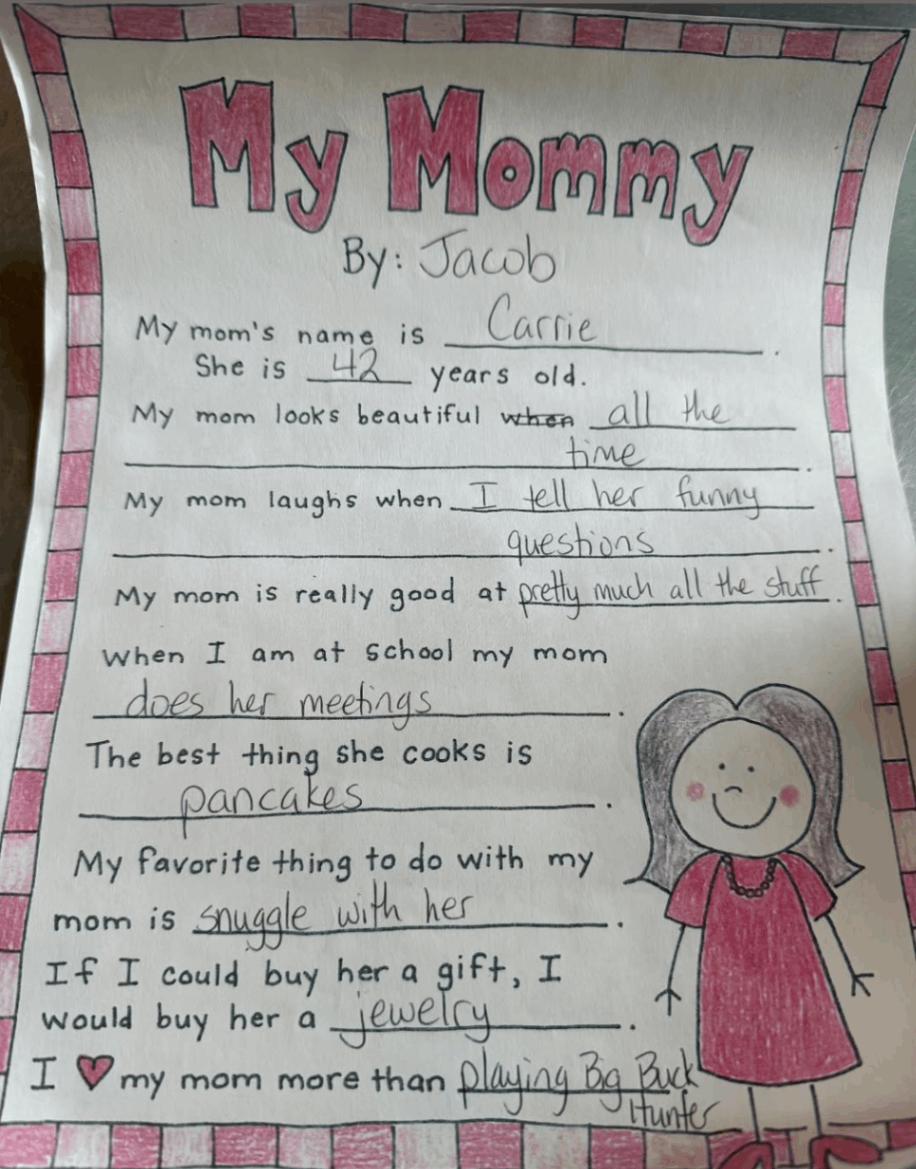 My Mommy
By: Jacob
My mom's name is Carrie.
She is 42 years old.
My mom looks beautiful when all the
time.
My mom laughs when I tell her funny
questions.
My mom is really good at pretty much all the stuff.
When I am at school my mom
does her meetings.
The best thing she cooks is
pancakes.
My favorite thing to do with my
mom is snuggle with her.
If I could buy her a gift, I
would buy her a jewelry.
I ♥ my mom more than playing Big Buck
Hunter